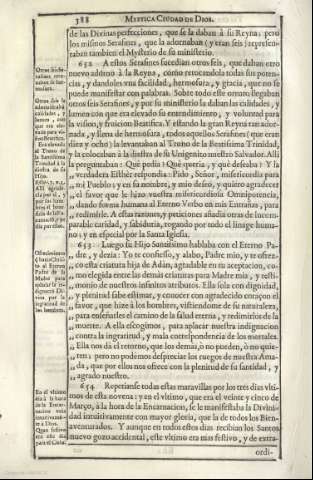 388 MYSTICA CIUDAD DE DIOS.
de las Divinas perfecciones, que se la daban à su Reyna; pero
los mismos Serafines, que la adornaban (y eran seis) represen-
taban tambien el Mysterio de su ministerio.
652 A estos Serafines sucedian otros seis, que daban otro
nuevo adorno à la Reyna, como retocandola todas sus poten-
cias, y dandolas una facilidad, hermosura, y gracia, que no se
puede manifestar con palabras. Sobre todo este ornato llegaban
otros seis Serafines, y por su ministerio la daban las calidades, y
lumen con que era elevado su entendimiento, y voluntad para
la vision, y fruicion Beatifica. Y estando la gran Reyna tan ador-
nada, y llena de hermosura, todos aquellos Serafines (que eran
diez y ocho) la levantaban al Trono de la Beatissima Trinidad,
y la colocaban à la diestra de su Unigenito nuestro Salvador. Alli
la preguntaban: Què pedia? Què queria, y què deseaba? Y la
verdadera Esthèr respondia: Pido, Señor, misericordia para
mi Pueblo; y en su nombre, y mio deseo, y quiero agradecer
el favor que le hizo vuestra misericordiosa Omnipotencia,
dando forma humana al Eterno Verbo en mis Entrañas, para
redimirle. A estas razones, y peticiones añadia otras de incom-
parable caridad, y sabiduria, rogando por todo el linage huma-
no; y en especial por la Santa Iglesia.
653 Luego su Hijo Santissimo hablaba con el Eterno Pa-
dre, y decia: Yo te confiesso, y alabo, Padre mio, y te ofrez-
co esta criatura hija de Adàn, agradable en tu aceptacion, co-
mo elegida entre las demàs criaturas para Madre mia, y testi-
monio de nuestros infinitos atributos. Ella sola con dignidad,
y plenitud sabe estimar, y conocer con agradecido corazon el
favor, que hize à los hombres, vistiendome de su naturaleza,
para enseñarles el camino de la salud eterna, y redimirlos de la
muerte. A ella escogimos, para aplacar nuestra indignacion
contra la ingratitud, y mala correspondencia de los mortales.
Ella nos dà el retorno, que los demàs, ò no pueden, ò no quie-
ren; pero no podèmos despreciar los ruegos de nuestra Ama-
da, que por ellos nos ofrece con la plenitud de su santidad, y
agrado nuestro.
654 Repetianse todas estas maravillas por los tres dias ulti-
mos de esta novena; y en el ultimo, que era el veinte y cinco de
Março, à la hora de la Encarnacion, se le manifestaba la Divini-
dad intuitivamente con mayor gloria, que la de todos los Bien-
aventurados. Y aunque en todos estos dias recibian los Santos
nuevo gozo accidental, este ultimo era mas festivo, y de extra-
ordi-